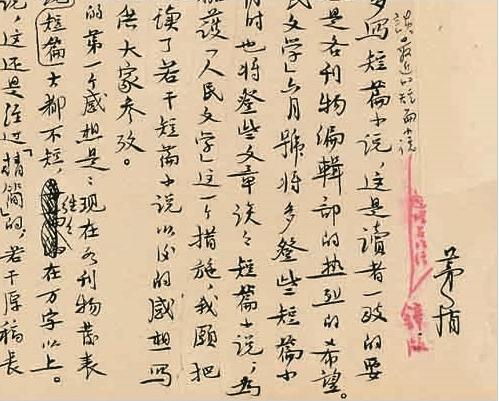 茅盾
谈最近的短篇小说
多写短篇小说，这是读者一致的要
是各刊物编辑部的热烈的希望。
民文学」六月號将多登些短篇小
时也将登些文章谈谈短篇小说，为
护「人民文学」这一个措施，我願把
读了若干短篇小说以后的感想写
供大家参攷。
的第一个感想是：现在各刊物發表
短篇大都不短，往往在万字以上。
说，这还是经过「精简」的，若干原稿长